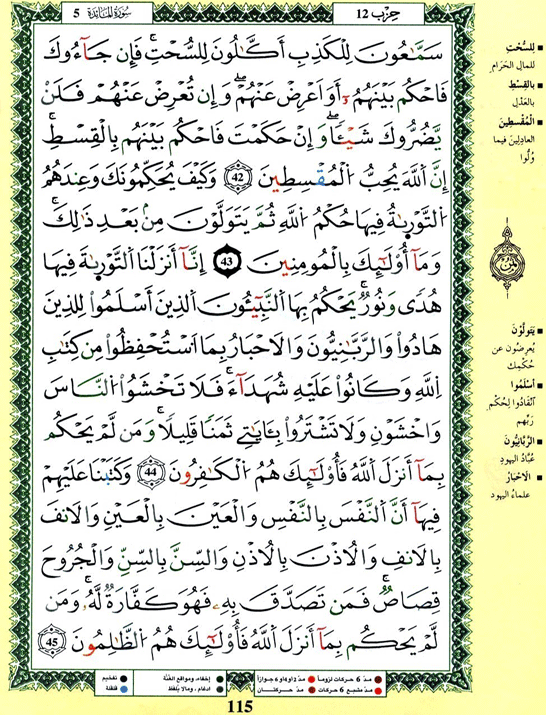 سُورَةُ الْمَائِدَة 5
حِزْب 12
سَمَّٰعُونَ لِلْكَذِبِ أَكَّٰلُونَ لِلسُّحْتِۖ فَإِن جَآءُوكَ
فَاحْكُم بَيْنَهُمُۥٓ أَوَ اَعْرِضْ عَنْهُمْۖ وَإِن تُعْرِضْ عَنْهُمْ فَلَنْ
يَّضُرُّوكَ شَيْـٔاًۖ وَإِنْ حَكَمْتَ فَاحْكُم بَيْنَهُم بِالْقِسْطِۖ
إِنَّ اَللَّهَ يُحِبُّ اُلْمُقْسِطِينَ 42 وَكَيْفَ يُحَكِّمُونَكَ وَعِندَهُمُ
اُلتَّوْر۪يٰةُ فِيهَا حُكْمُ اُللَّهِ ثُمَّ يَتَوَلَّوْنَ مِنۢ بَعْدِ ذَٰلِكَۖ
وَمَآ أُوْلَٰٓئِكَ بِالْمُومِنِينَ 43 إِنَّآ أَنزَلْنَا اَلتَّوْر۪يٰةَ فِيهَا
هُدىً وَنُورٌۖ يَحْكُمُ بِهَا اَلنَّبِيٓـُٔونَ اَلذِينَ أَسْلَمُواْ لِلذِينَ
هَادُواْ وَالرَّبَّٰنِيُّونَ وَالَاحْبَارُ بِمَا اَسْتُحْفِظُواْ مِن كِتَٰبِ
اِللَّهِ وَكَانُواْ عَلَيْهِ شُهَدَآءَۖ فَلَا تَخْشَوُاْ اُلنَّاسَ
وَاخْشَوْنِ وَلَا تَشْتَرُواْ بِـَٔايَٰتِے ثَمَناً قَلِيلاًۖ وَمَن لَّمْ يَحْكُم
بِمَآ أَنزَلَ اَللَّهُ فَأُوْلَٰٓئِكَ هُمُ اُلْكَٰفِرُونَ 44 وَكَتَبْنَا عَلَيْهِمْ
فِيهَآ أَنَّ اَلنَّفْسَ بِالنَّفْسِ وَالْعَيْنَ بِالْعَيْنِ وَالَانفَ
بِالَانفِ وَالُاذْنَ بِالُاذْنِ وَالسِّنَّ بِالسِّنِّ وَالْجُرُوحَ
قِصَاصٌۖ فَمَن تَصَدَّقَ بِهِۦ فَهُوَ كَفَّارَةٌ لَّهُۥۖ وَمَن
لَّمْ يَحْكُم بِمَآ أَنزَلَ اَللَّهُ فَأُوْلَٰٓئِكَ هُمُ اُلظَّٰلِمُونَ 45
لِلسُّحْتِ
للمال الحَرَامِ
بِالقِسْطِ
بالعَدْلِ
المُقْسِطِينَ
العادِلِينَ فيما
وُلُّوا
ثُمُن
يَتَوَلَّوْنَ
يُعرِضُون عن
حُكْمِك
أَسْلَمُوا
انْقَادُوا لِحُكْمِ
رَبِّهم
الرَّبَّانِيُّونَ
عُبَّادُ اليهودِ
الَاحْبَارُ
علماءُ اليهود
مدّ 6 حركات لزوماً
مدّ 2 أو 4 أو 6 جوازاً
مدّ مشبع 6 حركات
مدّ حركتان
إخفاء، ومواقع الغُنَّة
إدغام، وما لا يُلفظ
تفخيم
قلقلة
115